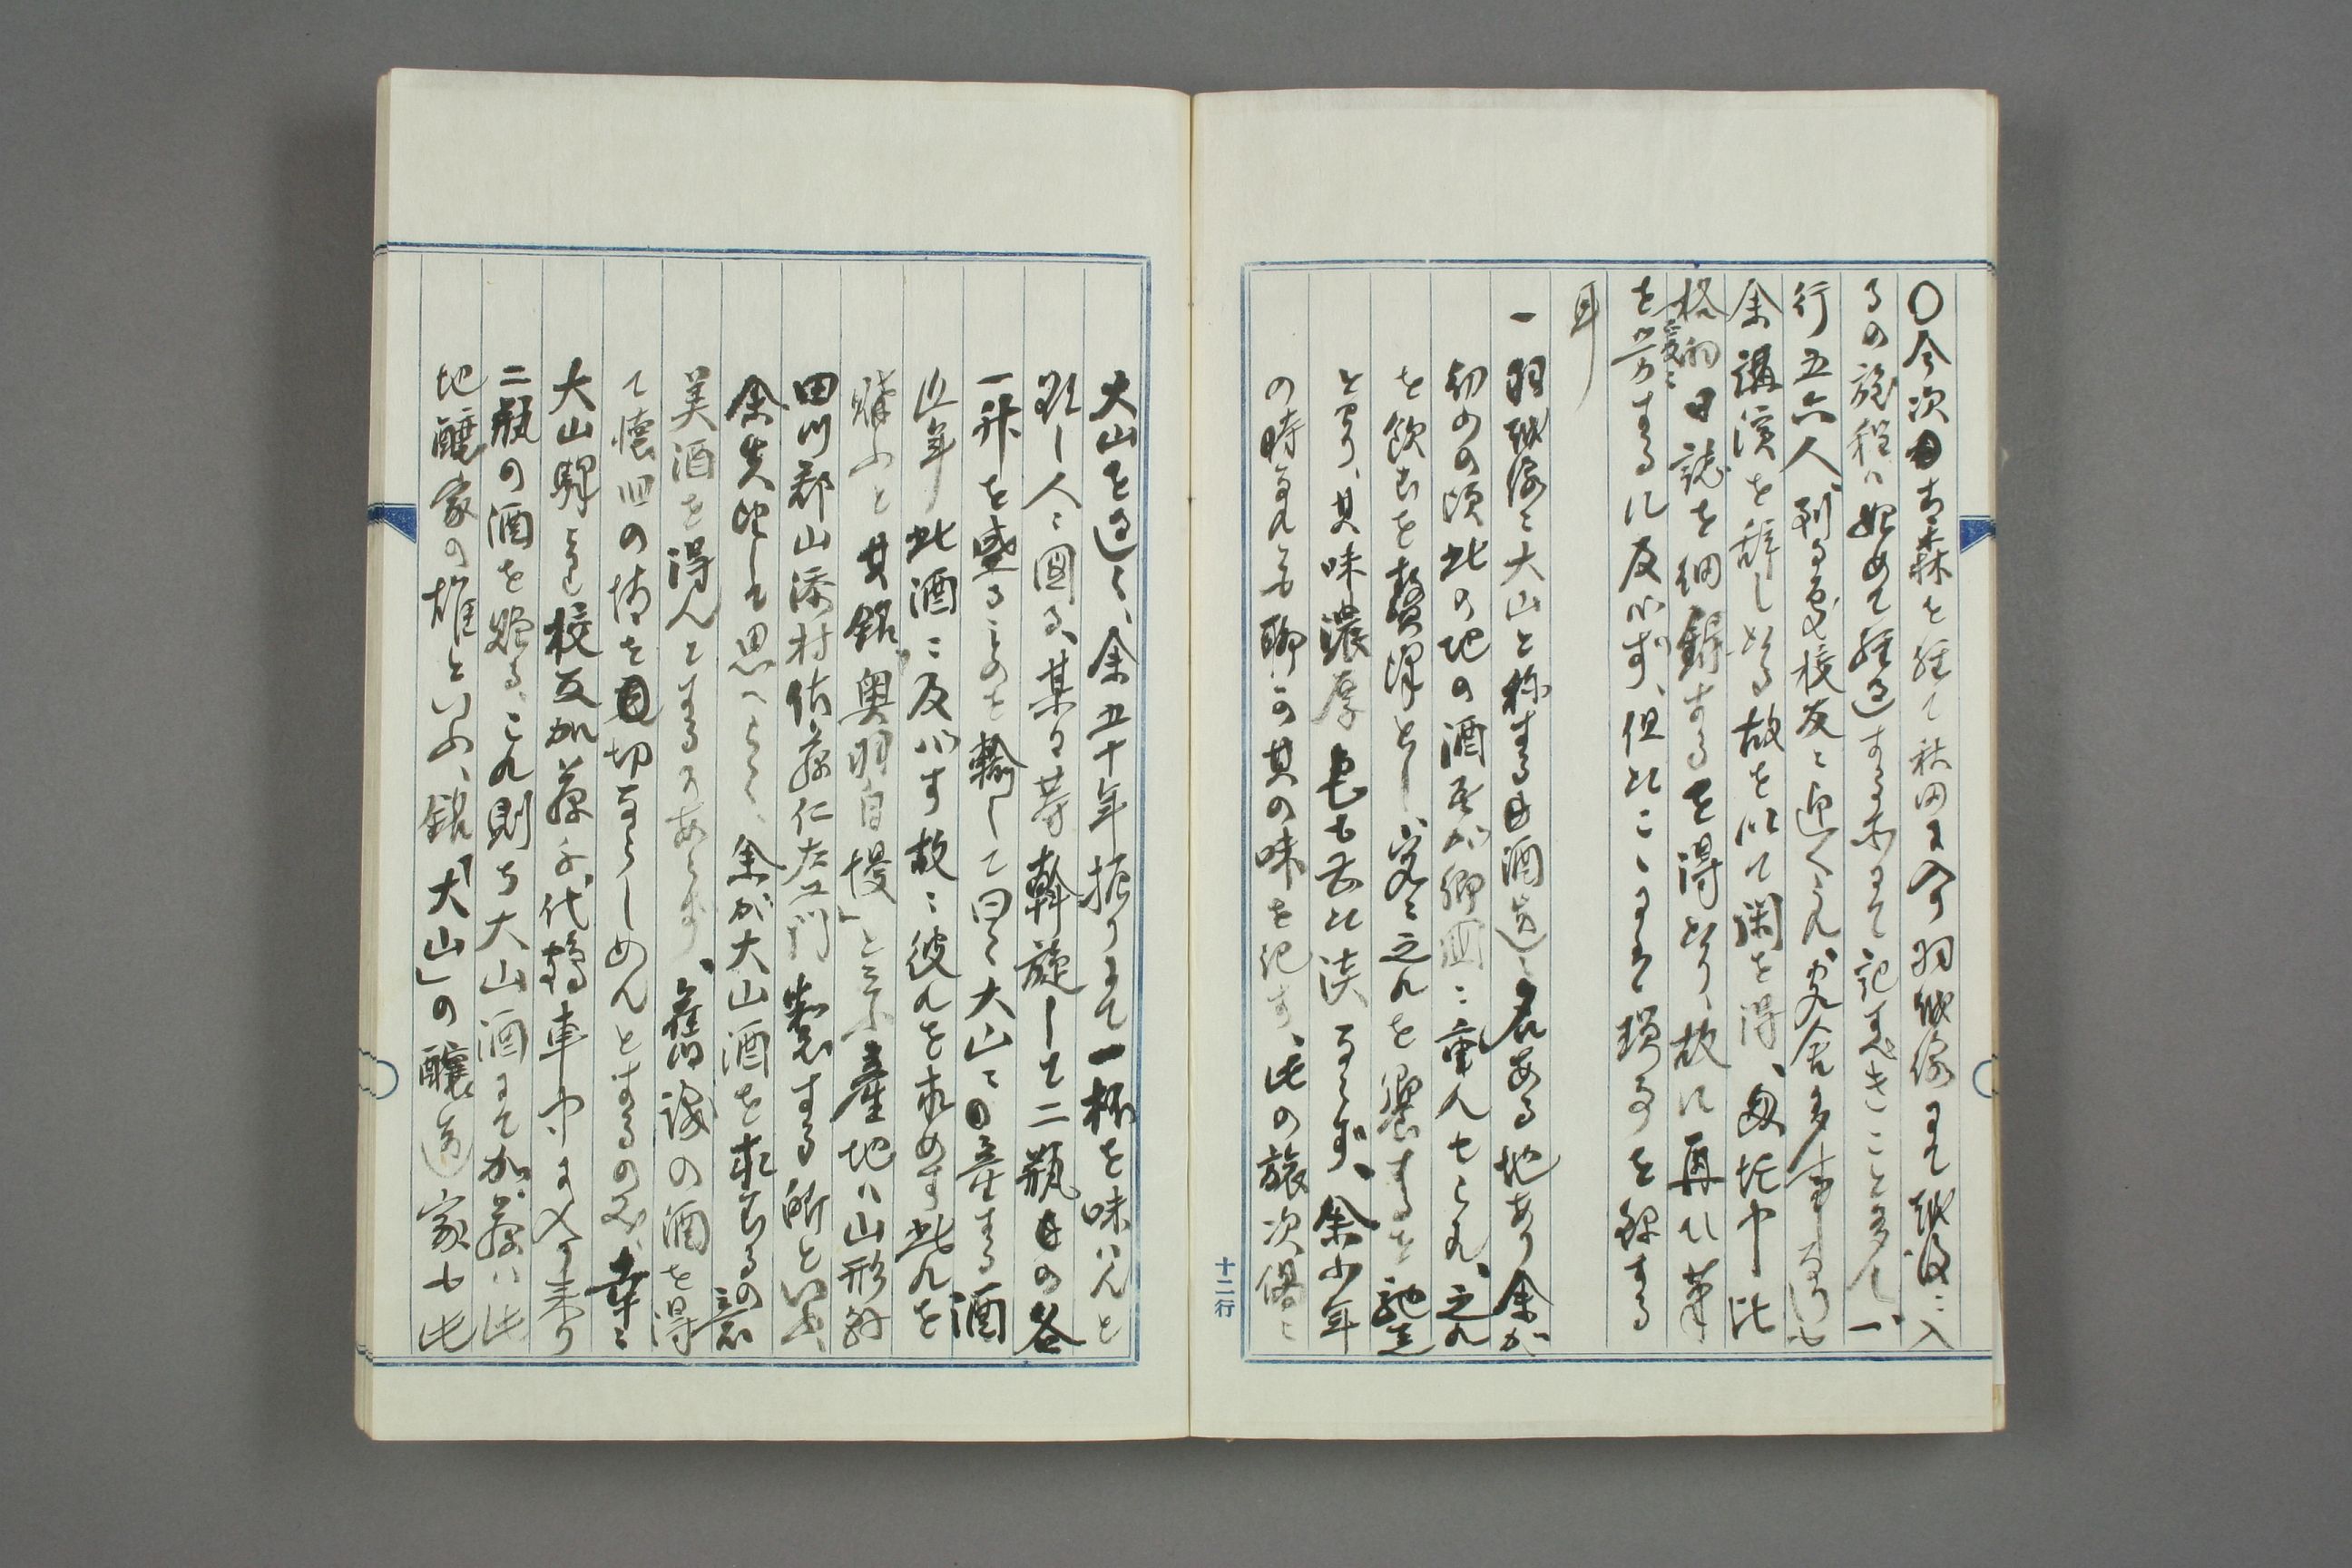 〇今次青森を経て秋田に入り羽越線にて越後ニ入
るの旅程ハ始めて経過する所にて記すべきこと多し、一
行五六人、到る処校友ニ迎へられ、宴会多事なりしも
余講演を辞したる故を以て閑を得、匆忙中此
日誌を細録するを得たり、故に再ひ筆
を労するに及ばず、但たこゝには瑣事を録する
耳
一羽越線ニ大山と称する酒造ニ名ある地あり余が
幼少の頃此の地の酒吾が郷国ニ重んせられ、之れ
を飲むを贅沢とし、客ニ之れを饗するを馳走
とせり、其味濃厚色も亦淡ならず、余少年
の時なれども聊か其の味を記す、此の旅次偶々
十二行
大山を過く、余五十年振りにて一杯を味はんと
欲し人ニ図る、某々等斡旋して二瓶の各
一升を盛るものを輸して曰く大山ニ産する酒
近年此酒ニ及ハす故ニ彼れを求めす此れを
購ふと其銘「奥羽自慢」と云ふ産地ハ山形県
田川郡山添村佐藤仁左エ門製する所といふ
余失望して思へらく、余が大山酒を求むるの意
美酒を得んとするにあらず、舊識の酒を得
て懐旧の情を切ならしめんとするのみ、幸ニ
大山駅にて校友加藤千代鶴車中に入り来り
二瓶の酒を贈る、これ則ち大山酒にて加藤ハ此
地醸家の雄といふ、銘「大山」の醸造家も此